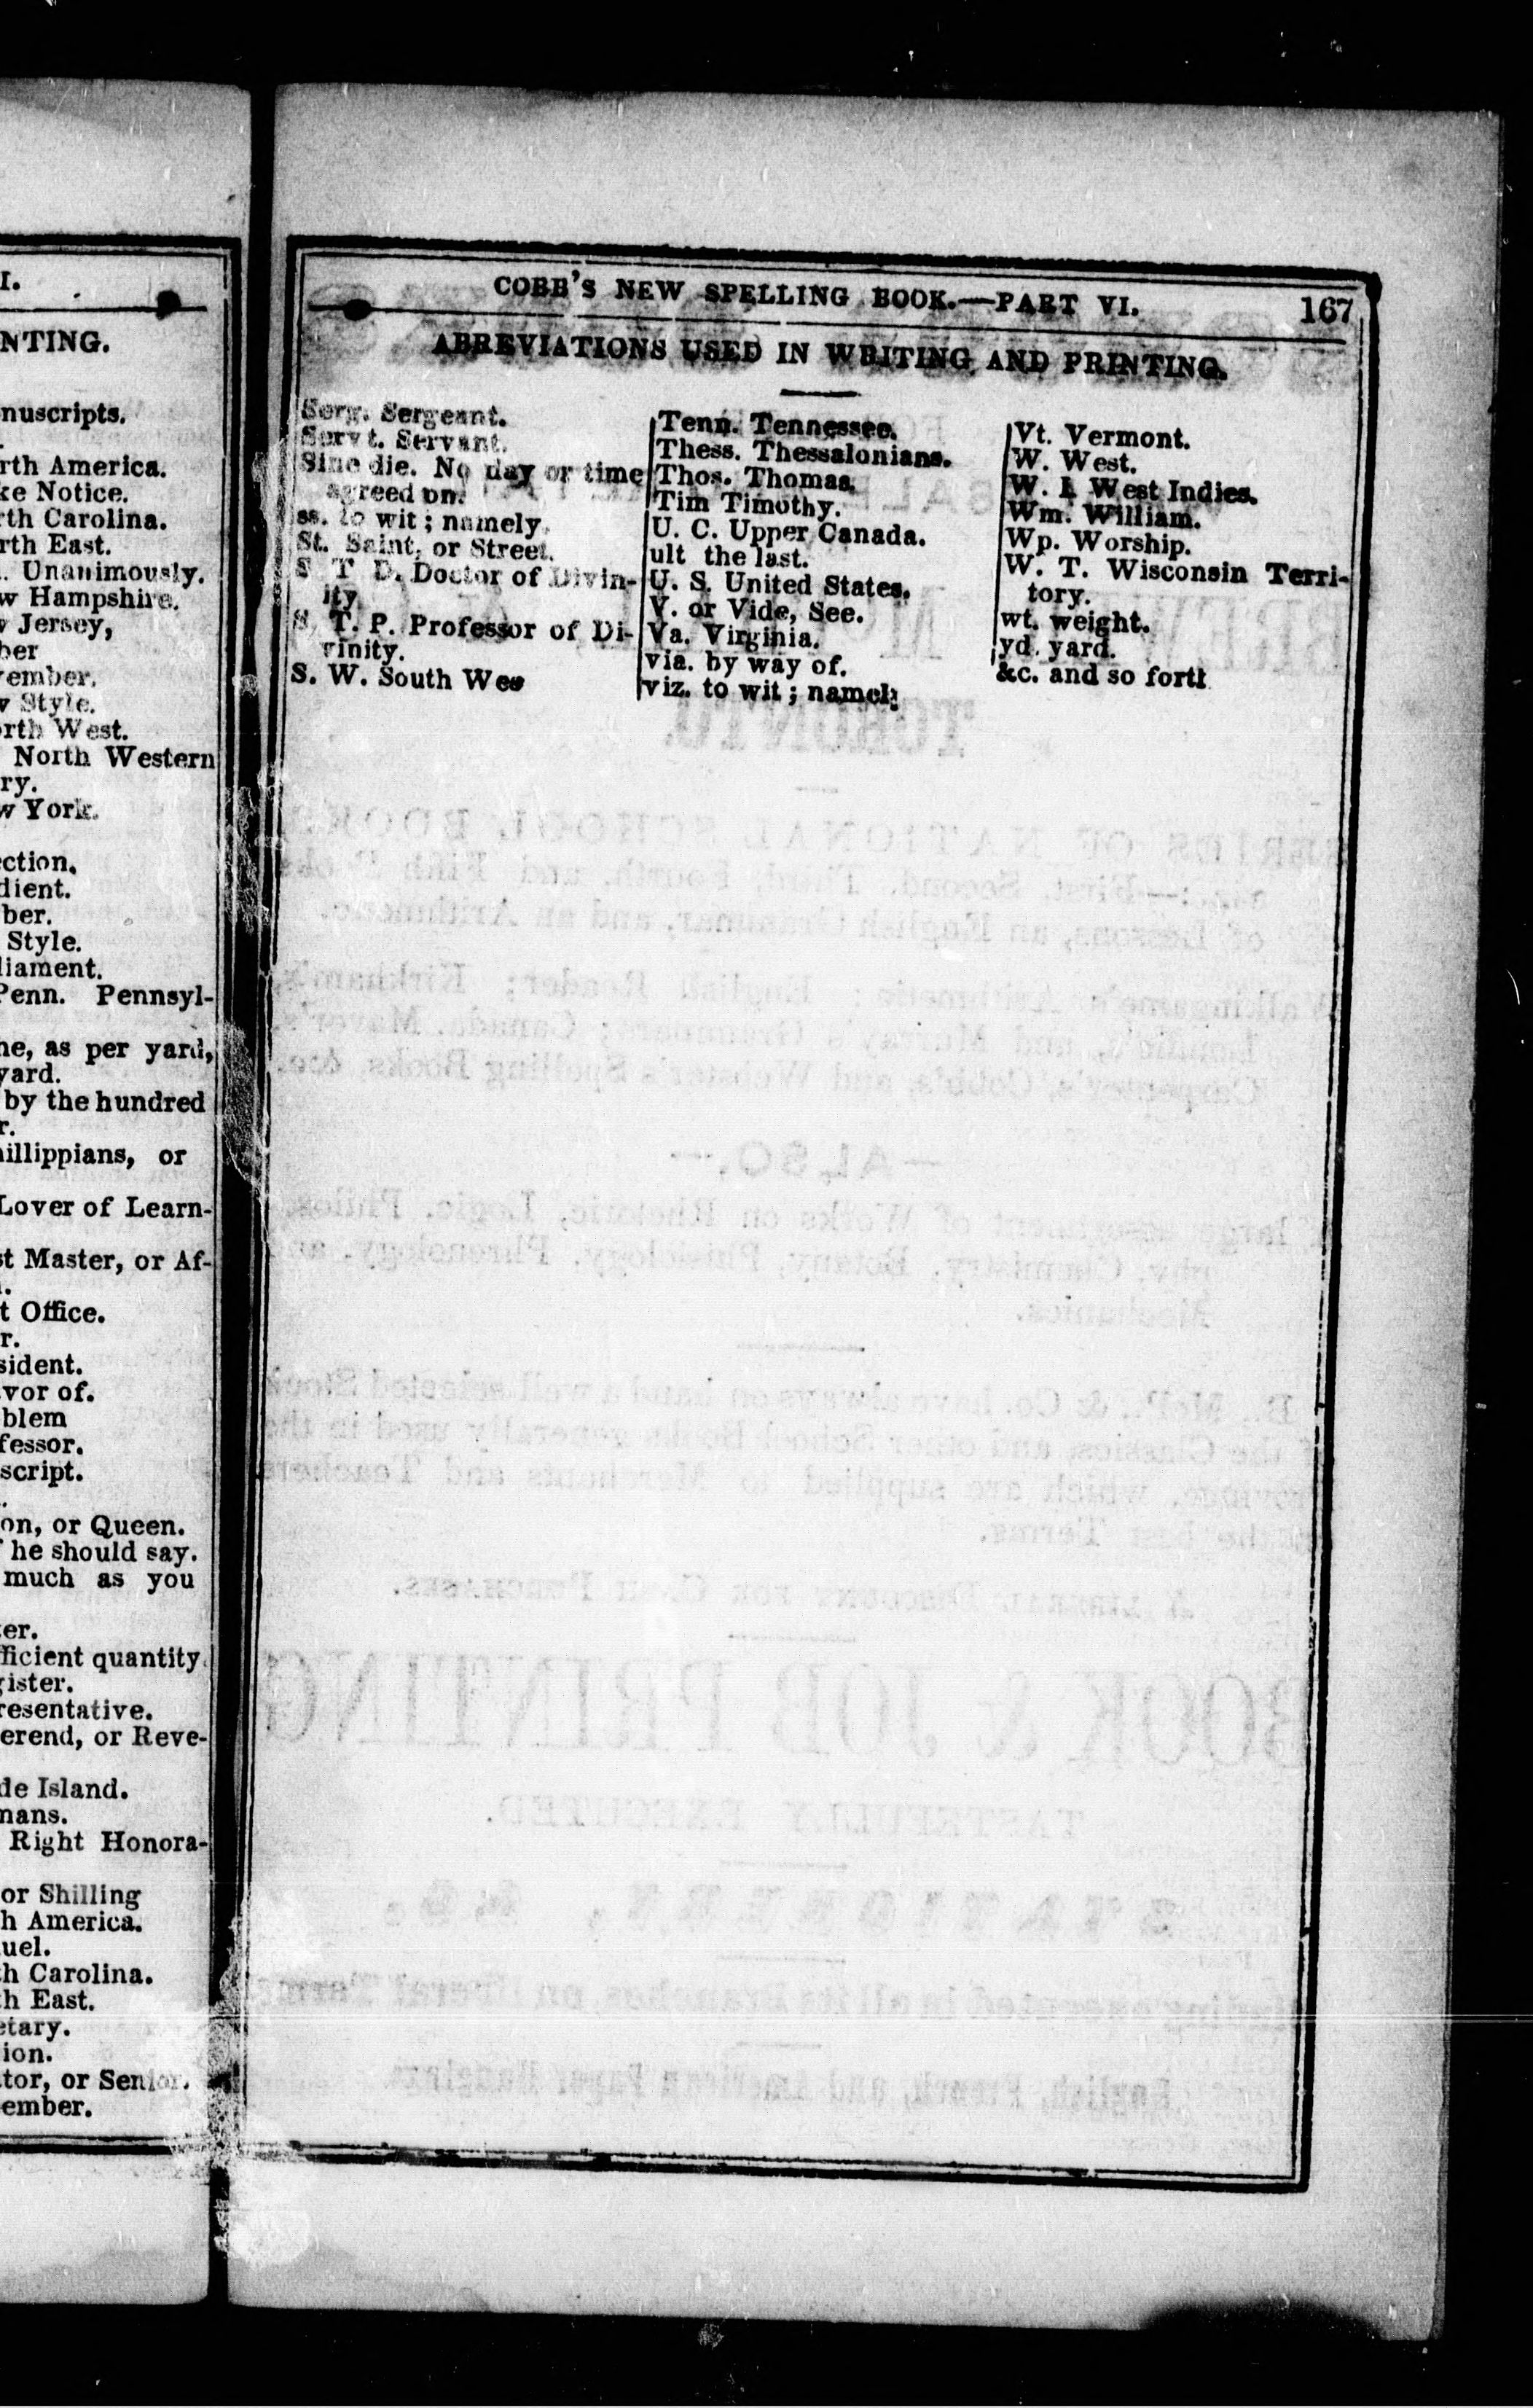 I.
NTING.
nuscripts.
rth America.
ke Notice.
rth Carolina.
rth East.
. Unanimously.
w Hampshire.
v Jersey,
ber
vember.
v Style.
orth West.
North Western
ry.
w York.
ection.
dient.
ber.
Style.
liament.
Penn. Pennsyl-
ne, as per yard,
yard.
by the hundred
r.
hillippians, or
Lover of Learn-
st Master, or Af-
t Office.
r.
sident.
vor of.
blem
fessor.
script.
on, or Queen.
he should say.
much as you
er.
fficient quantity.
gister.
resentative.
erend, or Reve-
de Island.
mans.
Right Honora-
or Shilling
h America.
uel.
th Carolina.
th East.
etary.
ion.
tor, or Senior.
ember.
COBB'S NEW SPELLING BOOK.—PART VI. 167
ABREVIATIONS USED IN WRITING AND PRINTING.
Serg. Sergeant.
Servt. Servant.
Sine die. No day or time
agreed on.
ss. to wit; namely.
St. Saint, or Street.
S. T. D. Doctor of Divin-
ity.
S. T. P. Professor of Di-
vinity.
S. W. South Wes
Tenn. Tennessee.
Thess. Thessalonians.
Thos. Thomas.
Tim Timothy.
U. C. Upper Canada.
ult the last.
U. S. United States.
V. or Vide, See.
Va. Virginia.
via. by way of.
viz. to wit; namely
Vt. Vermont.
W. West.
W. I. West Indies.
Wm. William.
Wp. Worship.
W. T. Wisconsin Terri-
tory.
wt. weight.
yd. yard.
&c. and so forth